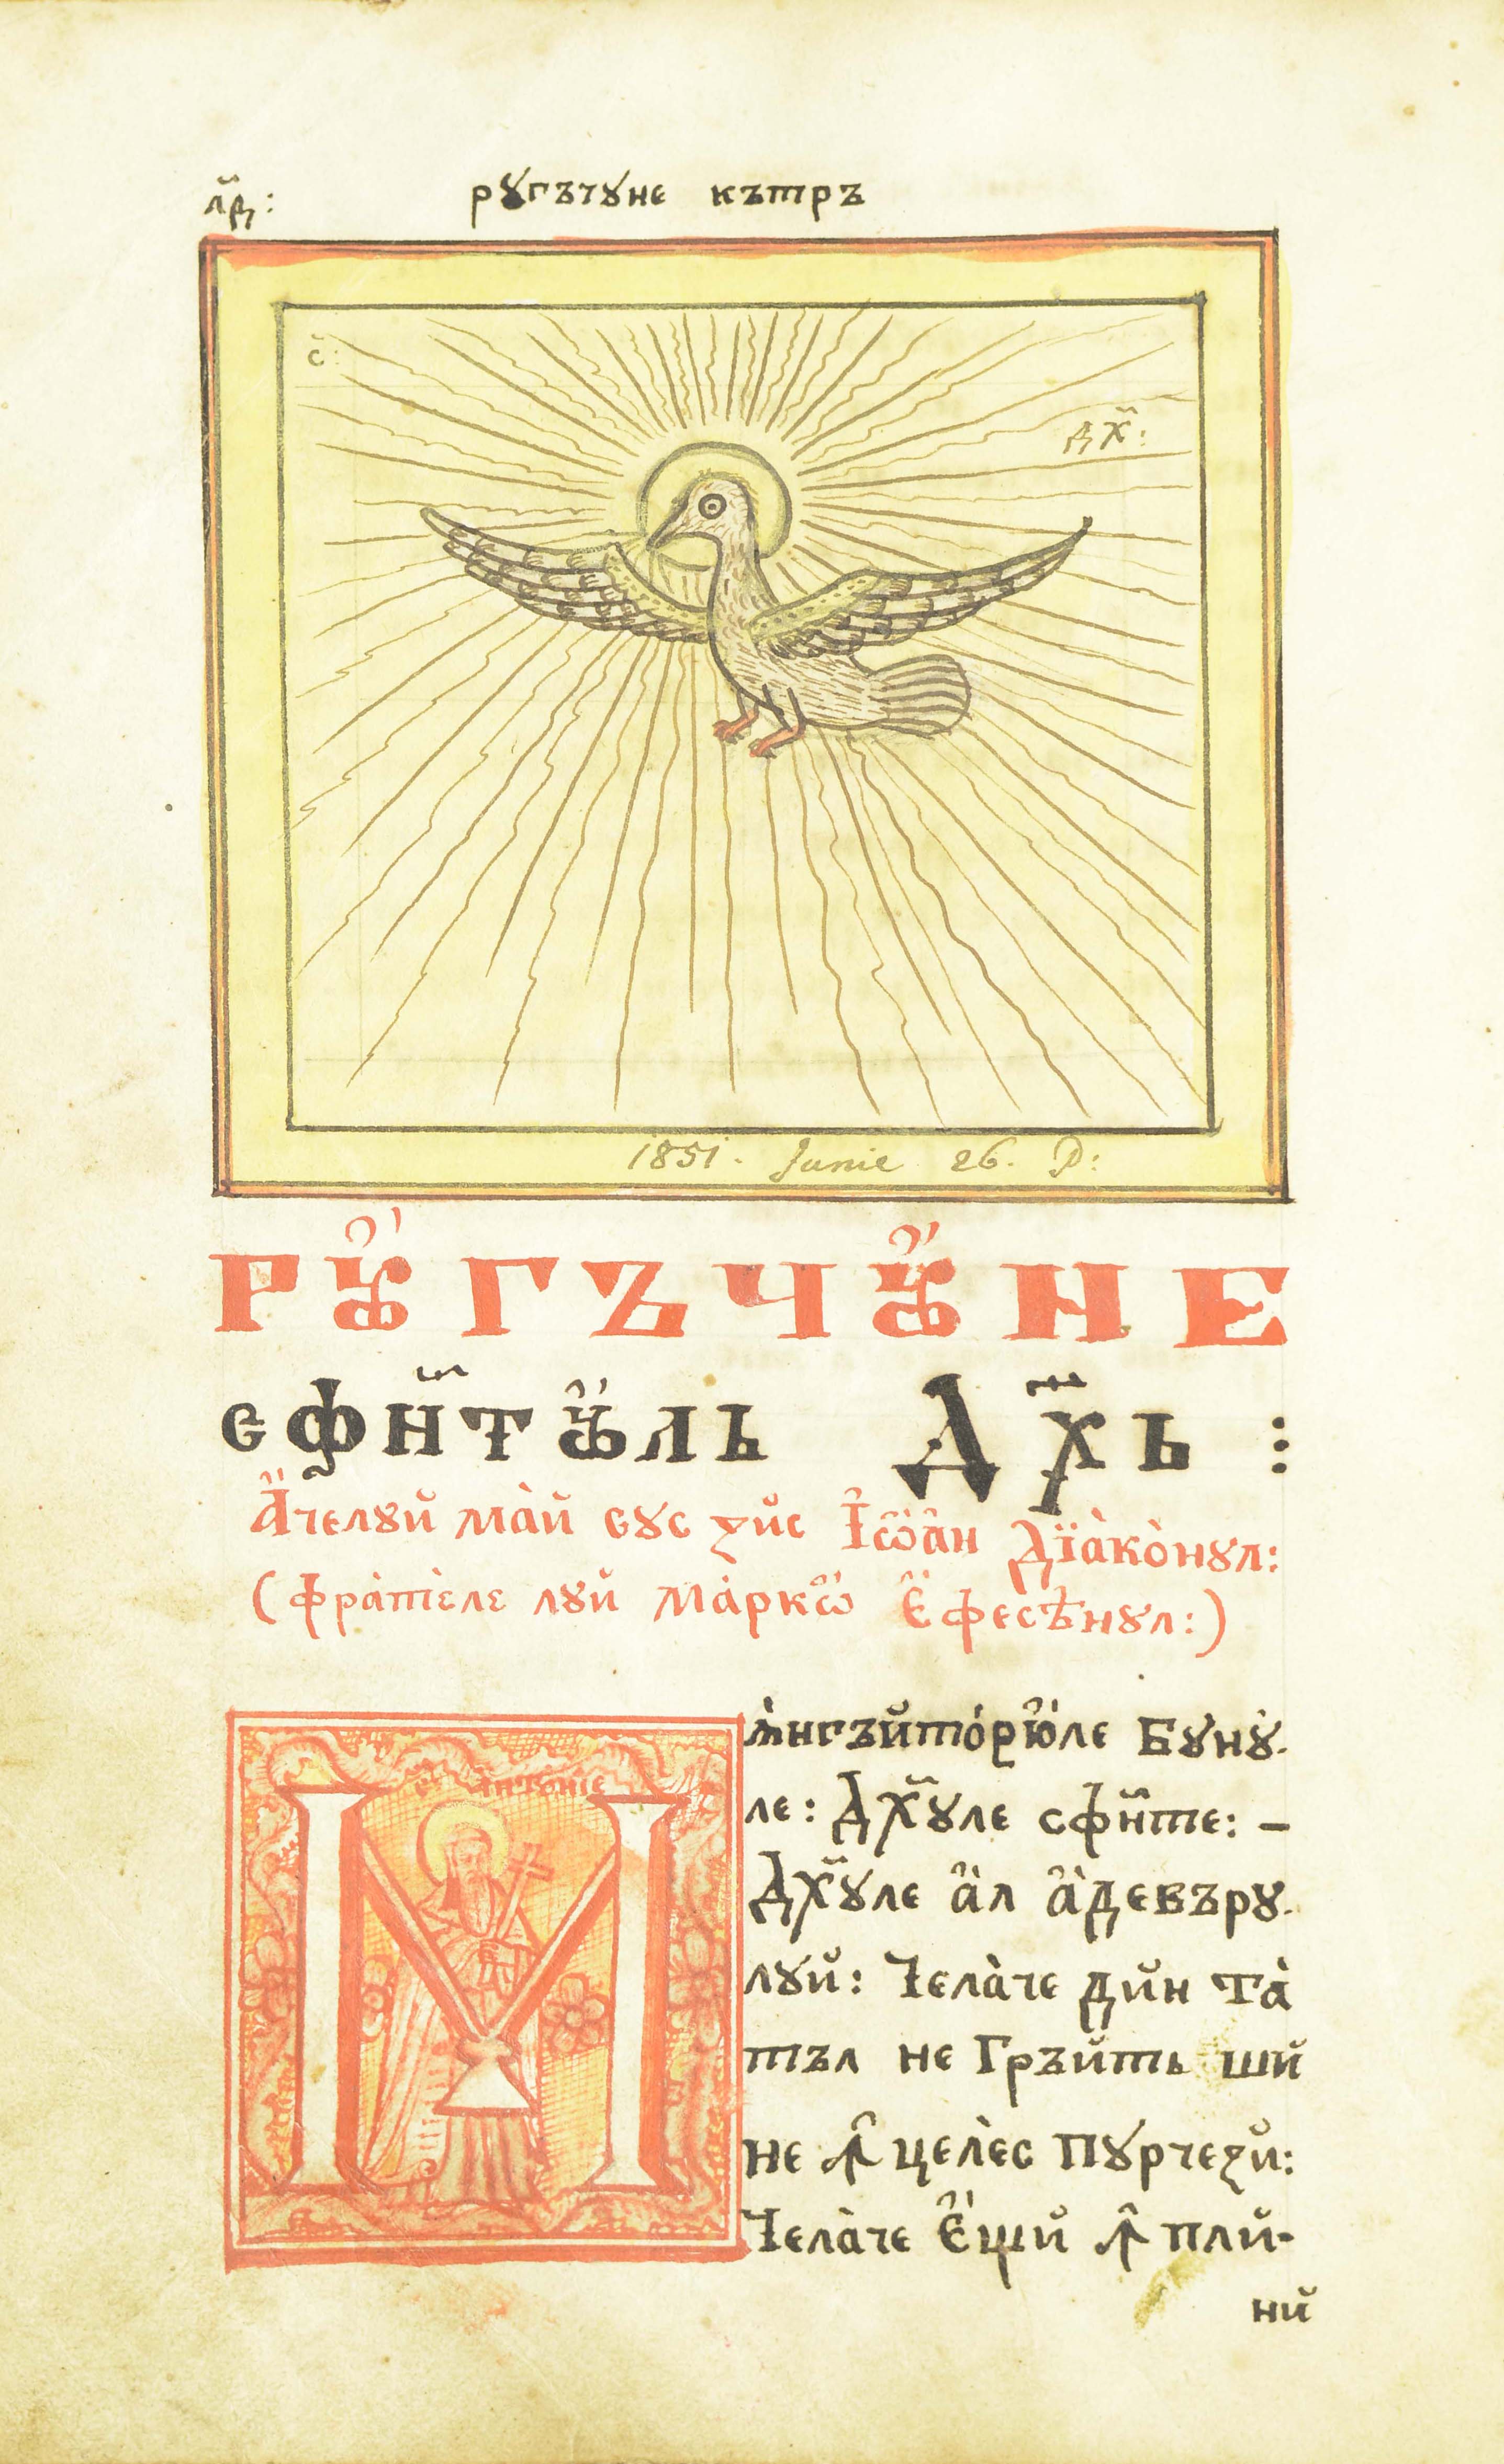 л҃д:
рꙋгъчꙋне кътръ
с҃:
дх҃:
1851. Junie 26. D:
РꙊГЪЧꙊНЕ
СФН҃ТꙊЛЬ ДХ҃Ь :
А҆́челꙋй ма̀й сꙋс ꙁйс І҆ѡ҆а҆н Дїа̀ко̀нꙋл:
(Фра̀тѐле лꙋй Ма̀ркѡ҆ Е҆́фесѣнꙋл:)
с҃ Антонїе
М
ѫ̀нгъйто́рю҆́ле Бꙋнꙋ̀-
ле: Дх҃ꙋле сфн҃те: –
Дх҃ꙋле а҆̀л а҆̀девърꙋ-
лꙋй: Чела̀че дйн Та̀
тъл не Гръйть шй
не ꙟ҆целѐс Пꙋрчеꙁй:
Чела̀че Е҆́щй ꙟ҆ плй-
нй